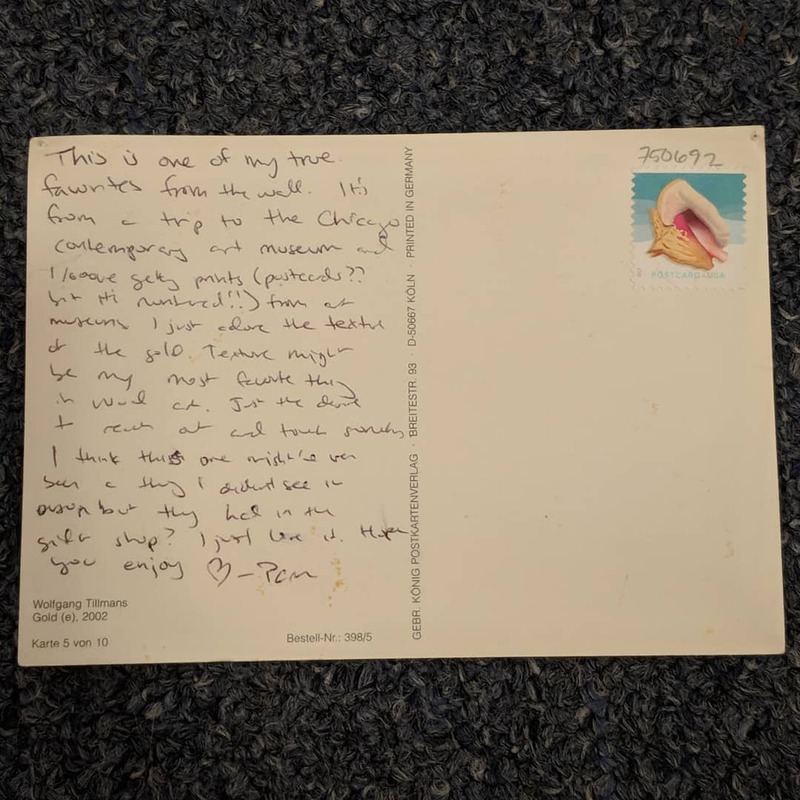 This is one of my true
favorites from the wall. It's
from a trip to the Chicago
contemporary art museum and
I love getting prints (postcards??
but it's numbered!!) from art
museums I just adore the texture
of the gold. Texture might
be my most favorite thing
in visual art. Just the desire
to reach out and touch something
I think this one might've even
been a thing I didn't see in
person but they had in the
gift shop? I just love it. Hope
you enjoy ♡ - Pam
Wolfgang Tillmans
Gold (e), 2002
Karte 5 von 10
Bestell-Nr.: 398/5
GEBR. KÖNIG POSTKARTENVERLAG · BREITESTR. 93 · D-50667 KÖLN · PRINTED IN GERMANY
750692
POSTCARD USA